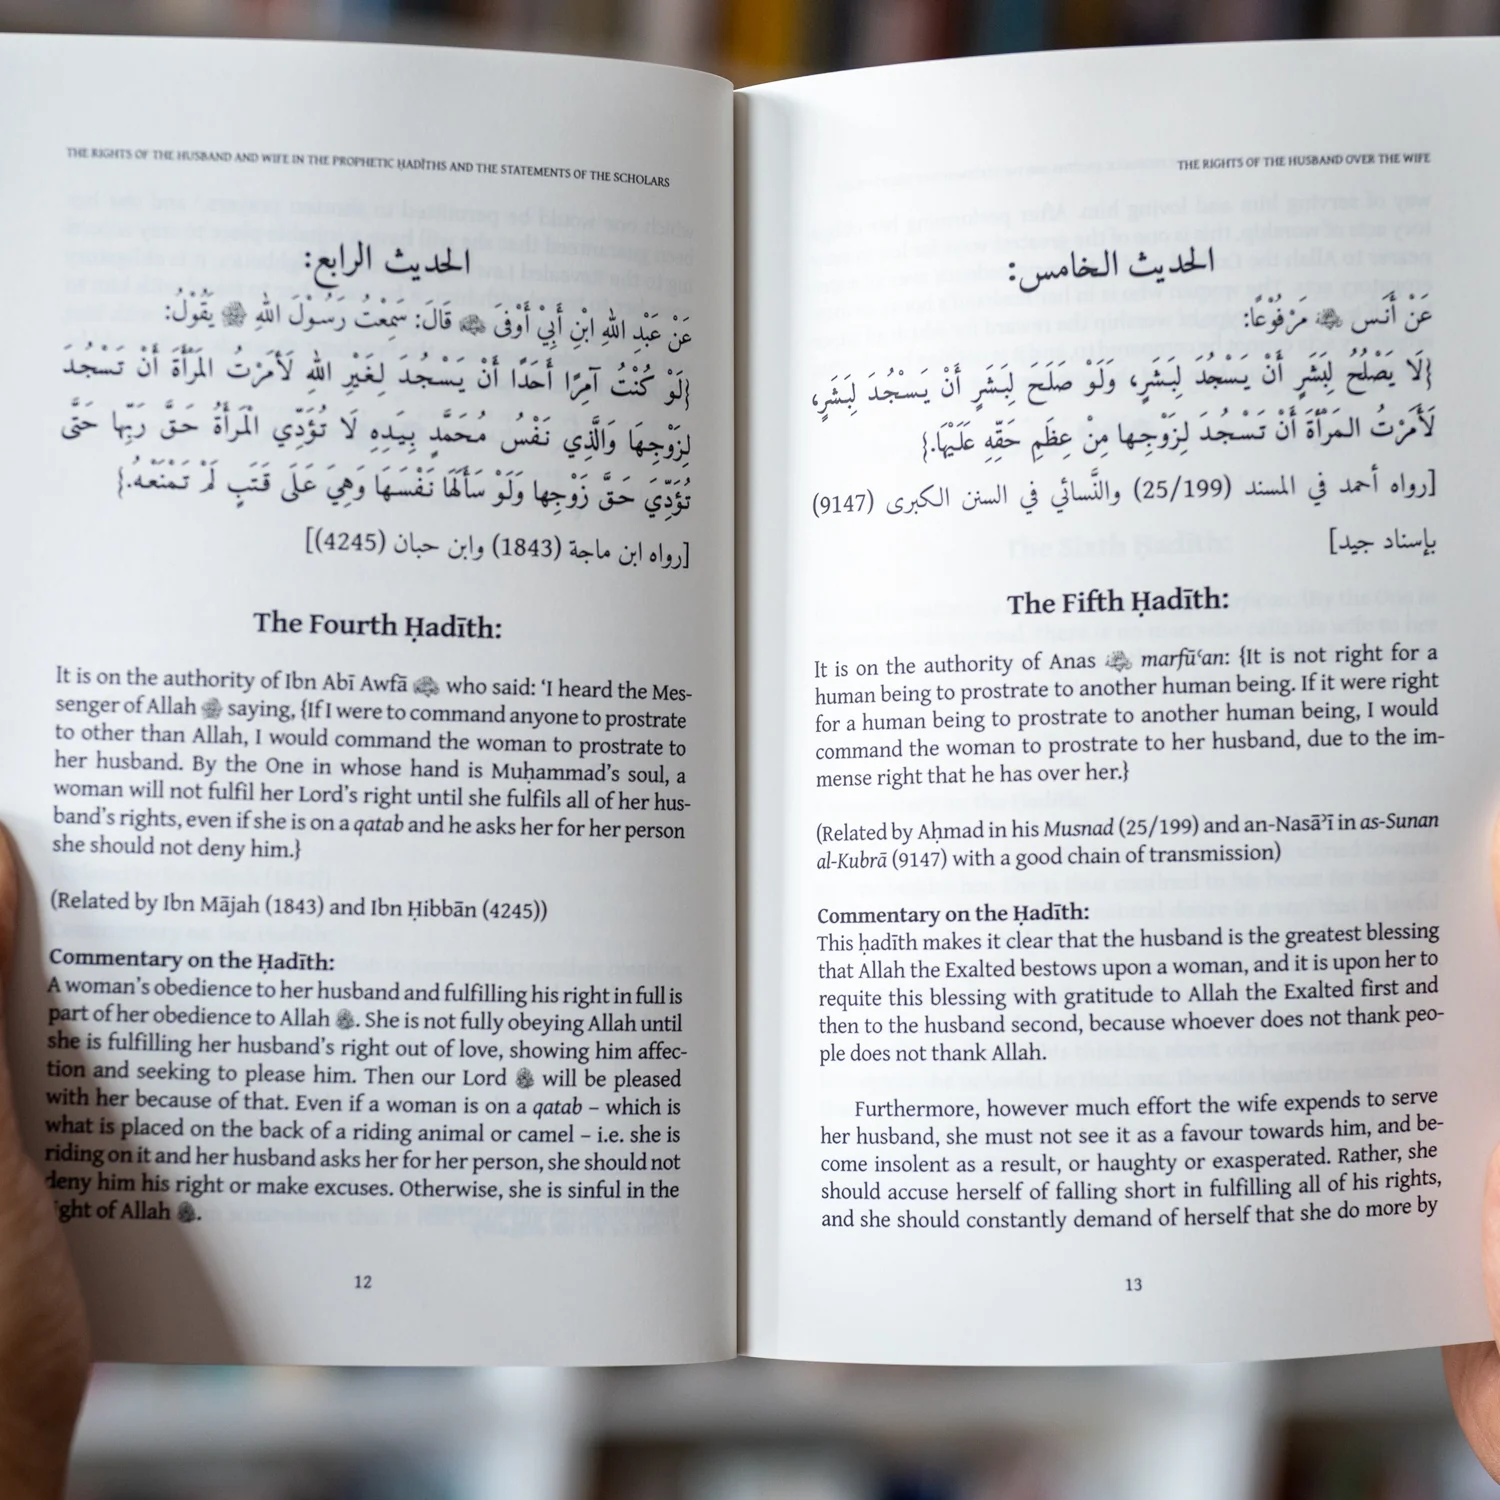 THE RIGHTS OF THE HUSBAND AND WIFE IN THE PROPHETIC ḤADĪTHS AND THE STATEMENTS OF THE SCHOLARS
الحديث الرابع:
عَنْ عَبْدِ اللهِ ابْنِ أَبِيْ أَوْفَى ﵁ قَالَ: سَمِعْتُ رَسُوْلَ اللهِ ﷺ يَقُوْلُ:
{لَوْ كُنْتُ آمِرًا أَحَدًا أَنْ يَسْجُدَ لِغَيْرِ اللهِ لَأَمَرْتُ المَرْأَةَ أَنْ تَسْجُدَ
لِزَوْجِهَا وَالَّذِي نَفْسُ مُحَمَّدٍ بِيَدِهِ لَا تُؤَدِّي الْمَرْأَةُ حَقَّ رَبِّها حَتَّى
تُؤَدِّيَ حَقَّ زَوْجِها وَلَوْ سَأَلَهَا نَفْسَهَا وَهِيَ عَلَى قَتَبٍ لَمْ تَمْنَعْهُ.}
[رواه ابن ماجة (1843) وابن حبان (4245)]
The Fourth Ḥadīth:
It is on the authority of Ibn Abī Awfā ﵁ who said: ‘I heard the Mes-
senger of Allah ﷺ saying, {If I were to command anyone to prostrate
to other than Allah, I would command the woman to prostrate to
her husband. By the One in whose hand is Muḥammad’s soul, a
woman will not fulfil her Lord’s right until she fulfils all of her hus-
band’s rights, even if she is on a qatab and he asks her for her person
she should not deny him.}
(Related by Ibn Mājah (1843) and Ibn Ḥibbān (4245))
Commentary on the Ḥadīth:
A woman’s obedience to her husband and fulfilling his right in full is
part of her obedience to Allah. She is not fully obeying Allah until
she is fulfilling her husband’s right out of love, showing him affec-
tion and seeking to please him. Then our Lord will be pleased
with her because of that. Even if a woman is on a qatab – which is
what is placed on the back of a riding animal or camel – i.e. she is
riding on it and her husband asks her for her person, she should not
deny him his right or make excuses. Otherwise, she is sinful in the
ght of Allah.
12
THE RIGHTS OF THE HUSBAND OVER THE WIFE
الحديث الخامس:
عَنْ أَنَس ﵁ مَرْفُوْعًا:
{لَا يَصْلُحُ لِبَشَرٍ أَنْ يَسْجُدَ لِبَشَرٍ، وَلَوْ صَلَحَ لِبَشَرٍ أَنْ يَسْجُدَ لِبَشَرٍ،
لَأَمَرْتُ المَرْأَةَ أَنْ تَسْجُدَ لِزَوْجِها مِنْ عِظَمِ حَقِّهِ عَلَيْهَا.}
[رواه أحمد في المسند (25/199) والنَّسائي في السنن الكبرى (9147)
بإسناد جيد]
The Fifth Ḥadīth:
It is on the authority of Anas ﵁ marfūʿan: {It is not right for a
human being to prostrate to another human being. If it were right
for a human being to prostrate to another human being, I would
command the woman to prostrate to her husband, due to the im-
mense right that he has over her.}
(Related by Aḥmad in his Musnad (25/199) and an-Nasāʾī in as-Sunan
al-Kubrā (9147) with a good chain of transmission)
Commentary on the Ḥadīth:
This ḥadīth makes it clear that the husband is the greatest blessing
that Allah the Exalted bestows upon a woman, and it is upon her to
requite this blessing with gratitude to Allah the Exalted first and
then to the husband second, because whoever does not thank peo-
ple does not thank Allah.
Furthermore, however much effort the wife expends to serve
her husband, she must not see it as a favour towards him, and be-
come insolent as a result, or haughty or exasperated. Rather, she
should accuse herself of falling short in fulfilling all of his rights,
and she should constantly demand of herself that she do more by
13